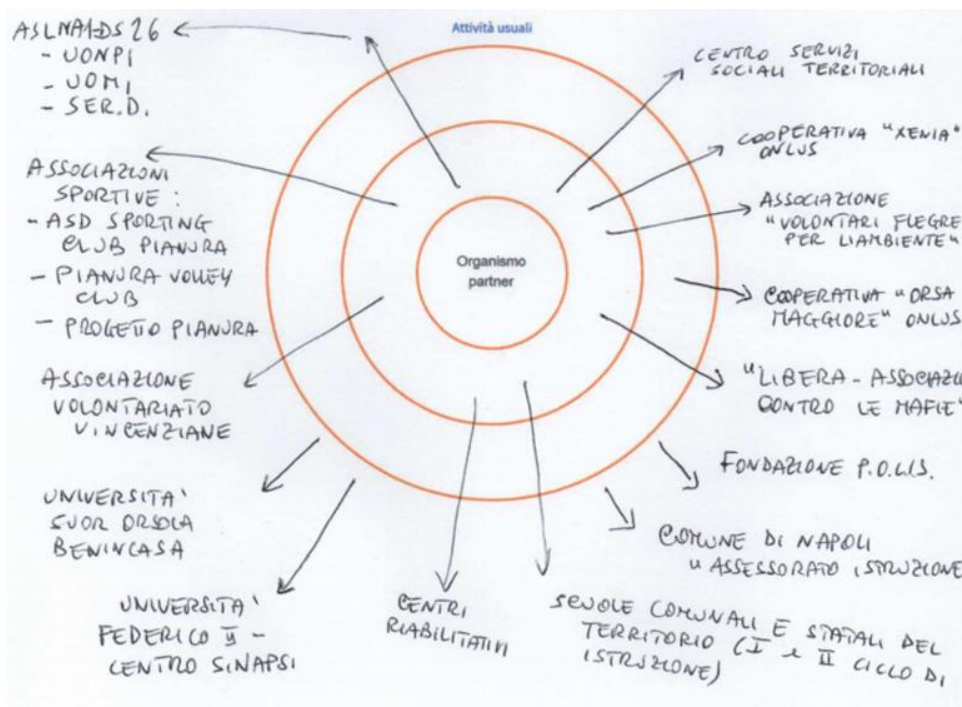 Attività usuali
Organismo
partner
ASLNA1-DS 26
- UONPI
- UOMI
- SER.D.
ASSOCIAZIONI
SPORTIVE:
- ASD SPORTING
CLUB PIANURA
- PIANURA VOLLEY
CLUB
- PROGETTO PIANURA
ASSOCIAZIONE
VOLONTARIATO
VINCENZIANE
UNIVERSITA'
SUOR ORSOLA
BENINCASA
UNIVERSITA'
FEDERICO II -
CENTRO SINAPSI
CENTRI
RIABILITATIVI
SCUOLE COMUNALI E STATALI DEL
TERRITORIO (I e II CICLO DI
ISTRUZIONE)
COMUNE DI NAPOLI
"ASSESSORATO ISTRUZIONE
FONDAZIONE P.O.LI.S.
"LIBERA - ASSOCIAZIO
CONTRO LE MAFIE"
COOPERATIVA "ORSA
MAGGIORE" ONLUS
ASSOCIAZIONE
"VOLONTARI FLEGRE
PER L'AMBIENTE"
COOPERATIVA "XENIA"
ONLUS
CENTRO SERVIZI
SOCIALI TERRITORIALI